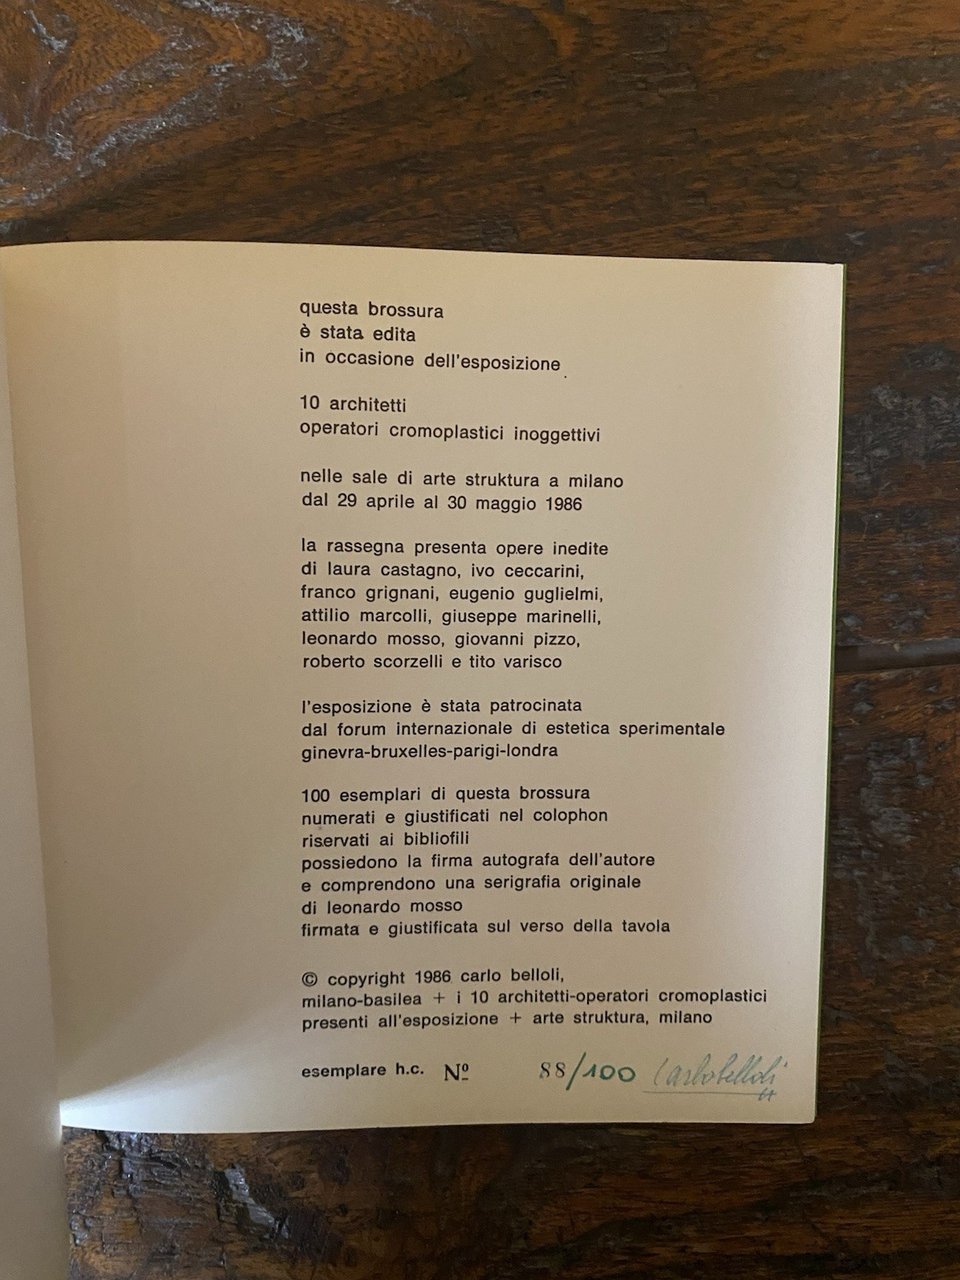 questa brossura
è stata edita
in occasione dell'esposizione
10 architetti
operatori cromoplastici inoggettivi
nelle sale di arte struktura a milano
dal 29 aprile al 30 maggio 1986
la rassegna presenta opere inedite
di laura castagno, ivo ceccarini,
franco grignani, eugenio guglielmi,
attilio marcolli, giuseppe marinelli,
leonardo mosso, giovanni pizzo,
roberto scorzelli e tito varisco
l'esposizione è stata patrocinata
dal forum internazionale di estetica sperimentale
ginevra-bruxelles-parigi-londra
100 esemplari di questa brossura
numerati e giustificati nel colophon
riservati ai bibliofili
possiedono la firma autografa dell'autore
e comprendono una serigrafia originale
di leonardo mosso
firmata e giustificata sul verso della tavola
© copyright 1986 carlo belloli,
milano-basilea + i 10 architetti-operatori cromoplastici
presenti all'esposizione + arte struktura, milano
esemplare h.c. Nº 88/100 Carlo Belloli